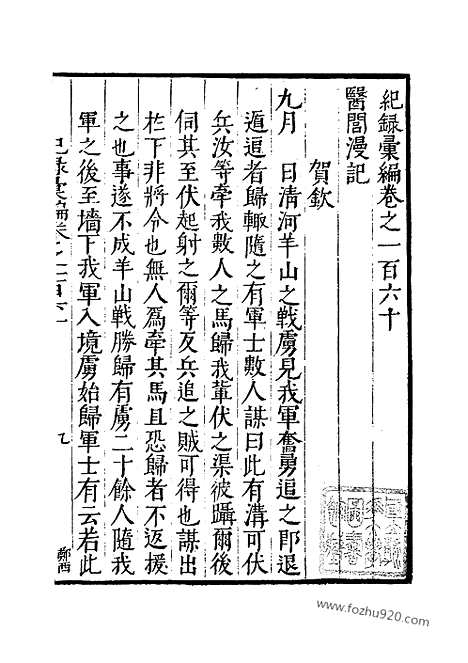 紀錄彙編卷之一百六十
醫閭漫記
賀欽
九月　日清河羊山之戰虜見我軍奮勇追之即退
遁逗者歸輙隨之有軍士數人謀曰此有溝可伏
兵汝等牽我數人之馬歸我輩伏之渠彼躡爾後
伺其至伏起射之爾等反兵追之賊可得也謀出
在下非將令也無人爲牽其馬且恐歸者不返援
之也事遂不成羊山戰勝歸有虜二十餘人隨我
軍之後至墻下我軍入境虜始歸軍士有云若此
鄭酉
www.fozhu920.com